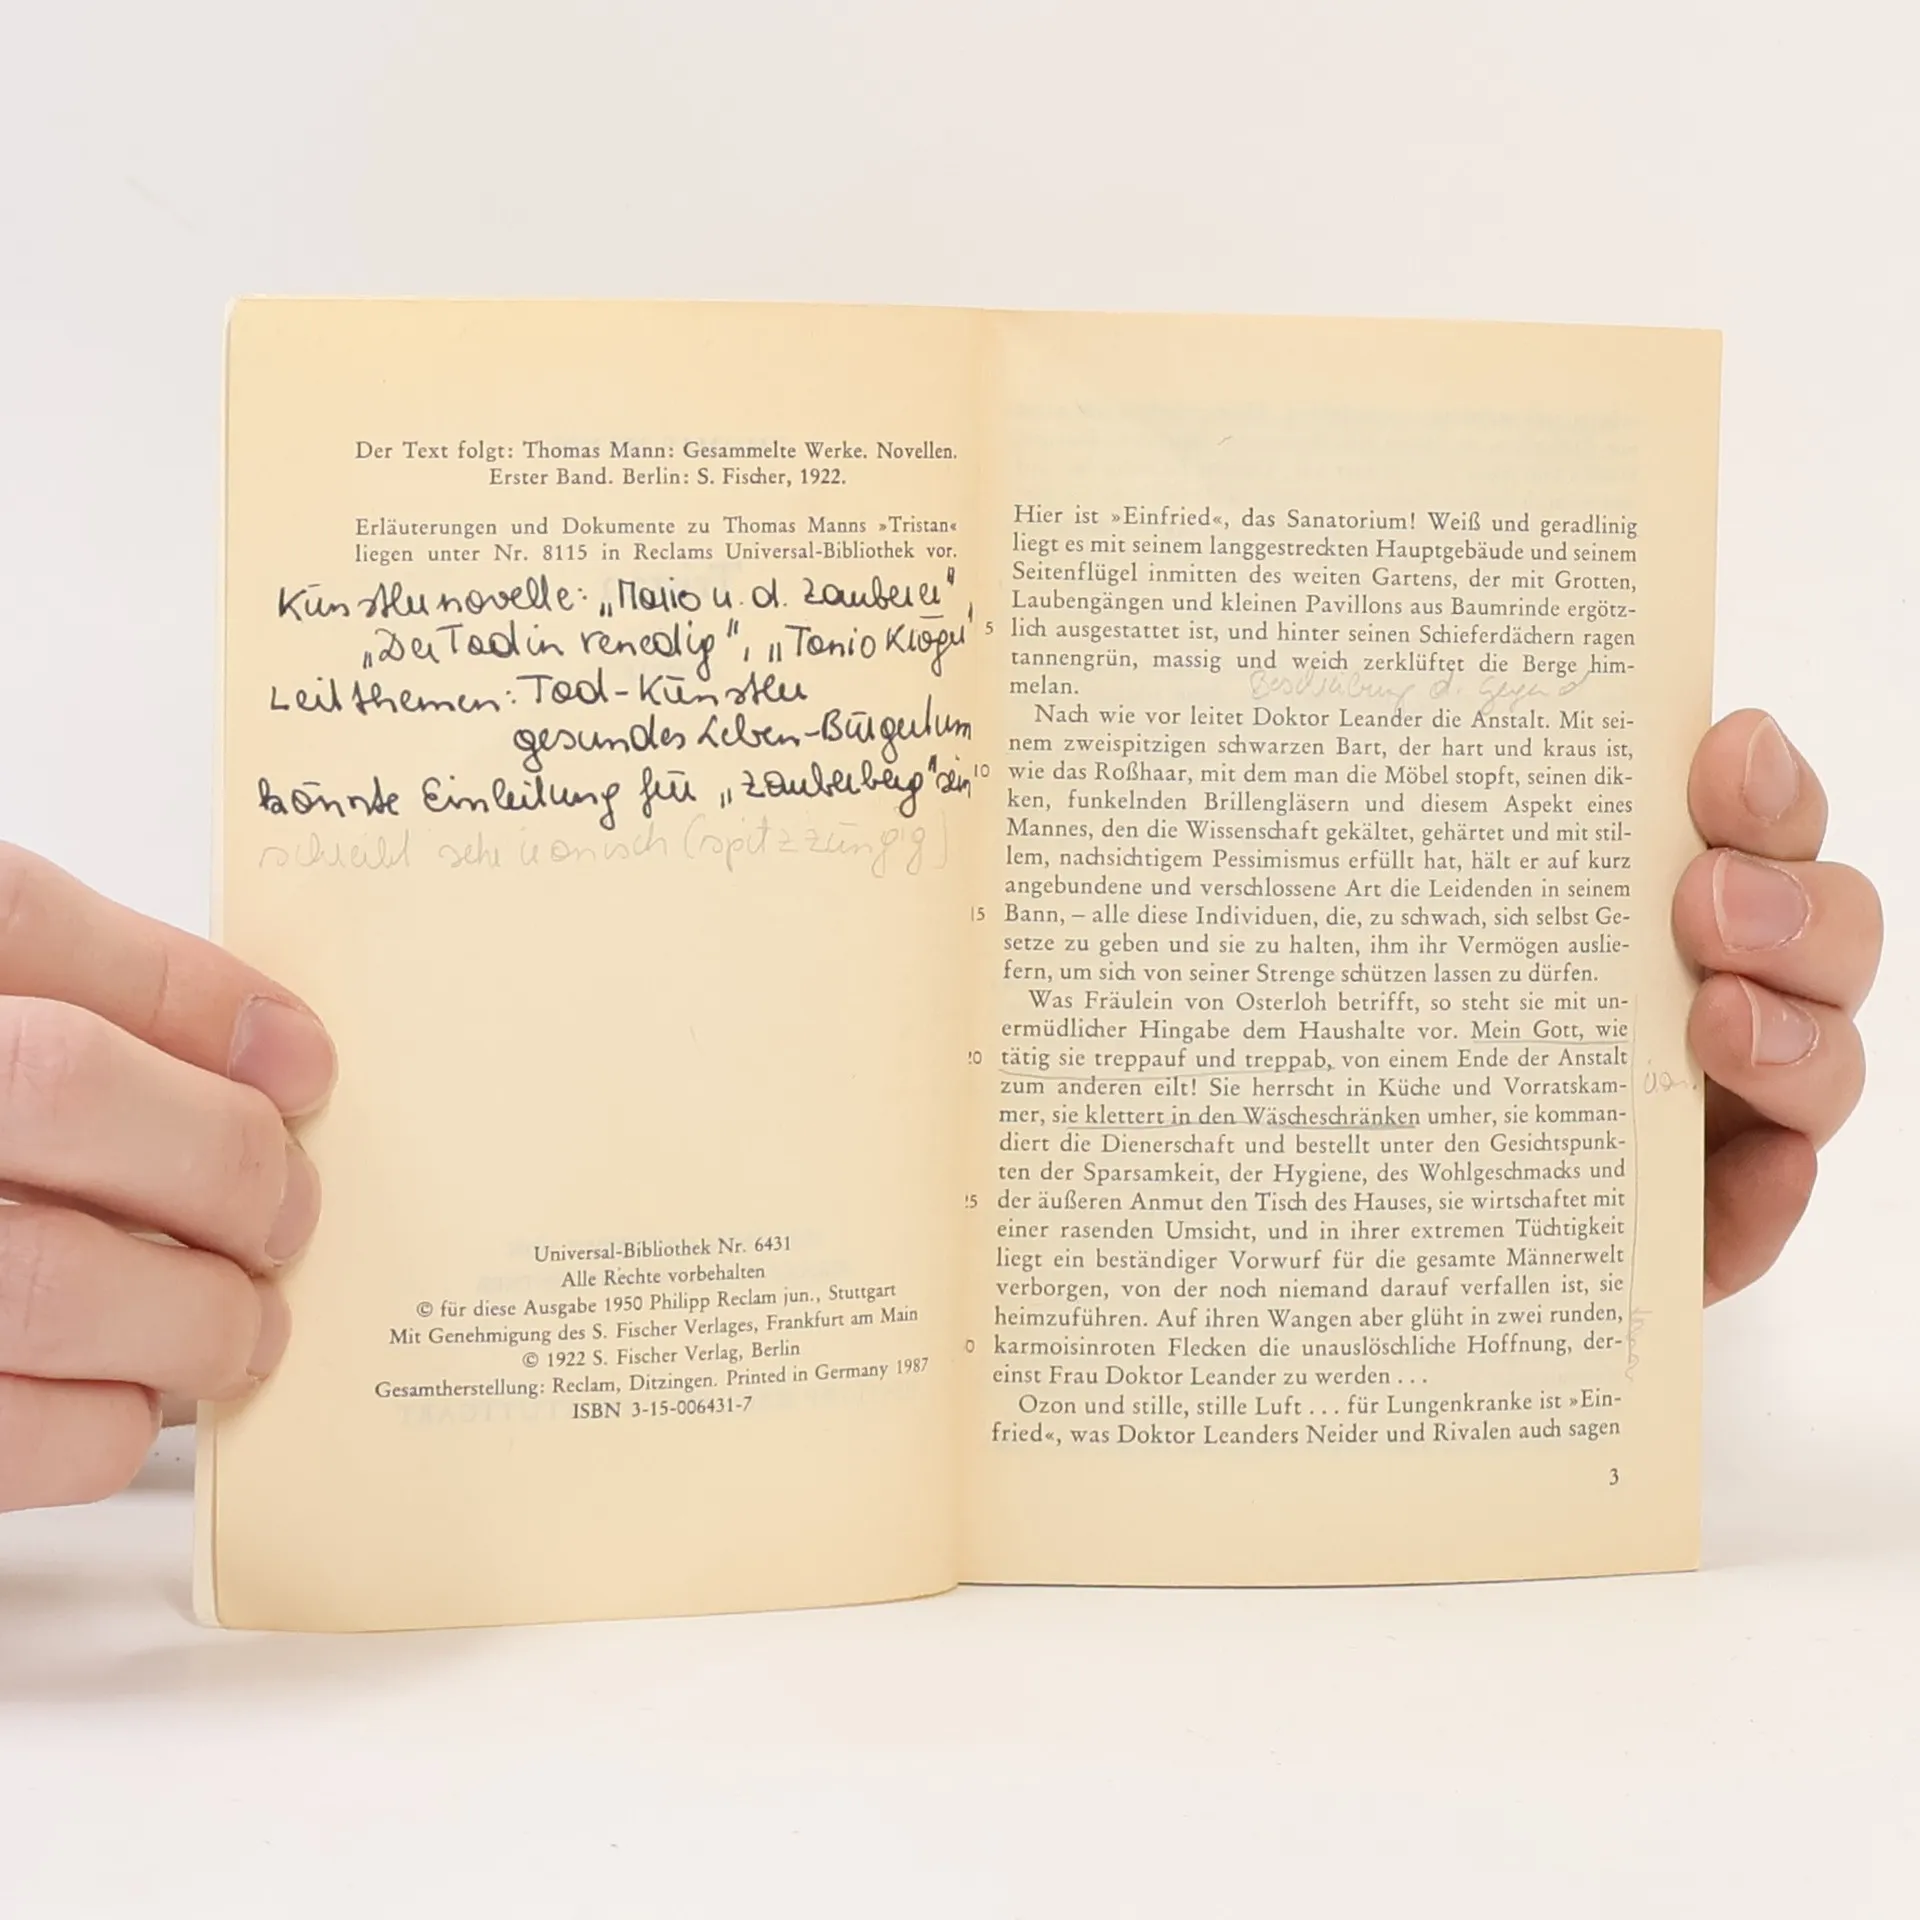 Der Text folgt: Thomas Mann: Gesammelte Werke. Novellen.
Erster Band. Berlin: S. Fischer, 1922.
Erläuterungen und Dokumente zu Thomas Manns »Tristan«
liegen unter Nr. 8115 in Reclams Universal-Bibliothek vor.
Künstlernovelle: „Mario u. d. Zauberer",
„Der Tod in Venedig", „Tonio Kröger"
Leitthemen: Tod-Künstler
gesundes Leben-Bürgertum
könnte Einleitung für „Zauberberg" sein
schreibt sehr ironisch (spitzzüngig)
Universal-Bibliothek Nr. 6431
Alle Rechte vorbehalten
© für diese Ausgabe 1950 Philipp Reclam jun., Stuttgart
Mit Genehmigung des S. Fischer Verlages, Frankfurt am Main
© 1922 S. Fischer Verlag, Berlin
Gesamtherstellung: Reclam, Ditzingen. Printed in Germany 1987
ISBN 3-15-006431-7
Hier ist »Einfried«, das Sanatorium! Weiß und geradlinig
liegt es mit seinem langgestreckten Hauptgebäude und seinem
Seitenflügel inmitten des weiten Gartens, der mit Grotten,
Laubengängen und kleinen Pavillons aus Baumrinde ergötz-
5 lich ausgestattet ist, und hinter seinen Schieferdächern ragen
tannengrün, massig und weich zerklüftet die Berge him-
melan. Beschreibung d. Gegend
Nach wie vor leitet Doktor Leander die Anstalt. Mit sei-
nem zweispitzigen schwarzen Bart, der hart und kraus ist,
10 wie das Roßhaar, mit dem man die Möbel stopft, seinen dik-
ken, funkelnden Brillengläsern und diesem Aspekt eines
Mannes, den die Wissenschaft gekältet, gehärtet und mit stil-
lem, nachsichtigem Pessimismus erfüllt hat, hält er auf kurz
angebundene und verschlossene Art die Leidenden in seinem
15 Bann, – alle diese Individuen, die, zu schwach, sich selbst Ge-
setze zu geben und sie zu halten, ihm ihr Vermögen auslie-
fern, um sich von seiner Strenge schützen lassen zu dürfen.
Was Fräulein von Osterloh betrifft, so steht sie mit un-
ermüdlicher Hingabe dem Haushalte vor. Mein Gott, wie
20 tätig sie treppauf und treppab, von einem Ende der Anstalt
zum anderen eilt! Sie herrscht in Küche und Vorratskam-
mer, sie klettert in den Wäscheschränken umher, sie komman-
diert die Dienerschaft und bestellt unter den Gesichtspunk-
ten der Sparsamkeit, der Hygiene, des Wohlgeschmacks und
25 der äußeren Anmut den Tisch des Hauses, sie wirtschaftet mit
einer rasenden Umsicht, und in ihrer extremen Tüchtigkeit
liegt ein beständiger Vorwurf für die gesamte Männerwelt
verborgen, von der noch niemand darauf verfallen ist, sie
heimzuführen. Auf ihren Wangen aber glüht in zwei runden,
0 karmoisinroten Flecken die unauslöschliche Hoffnung, der-
einst Frau Doktor Leander zu werden . . .
Ozon und stille, stille Luft . . . für Lungenkranke ist »Ein-
fried«, was Doktor Leanders Neider und Rivalen auch sagen
3